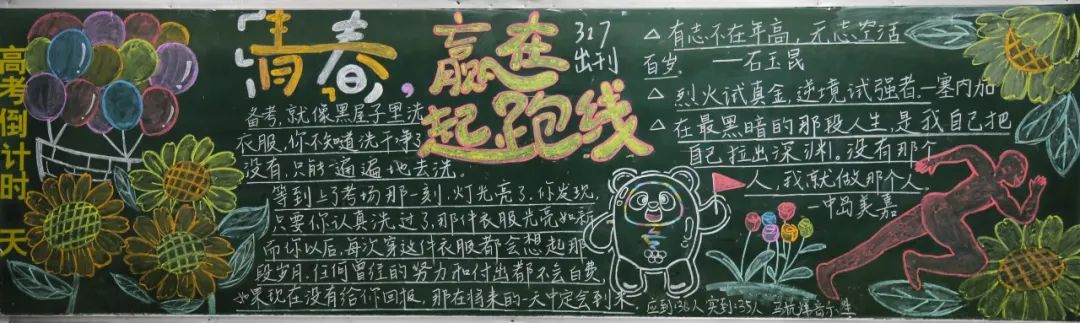 高考倒计时 天
青春,
赢在
起跑线
317
出刊
备考,就像黑屋子里洗
衣服,你不知道洗干净了
没有,只能遍遍地去洗。
等到上了考场那一刻,灯光亮了,你发现
只要你认真洗过了,那件衣服光亮如新
而你以后,每次穿这件衣服都会想起那
段岁月,任何曾经的努力和付出都不会白费,
如果现在没有给你回报,那在将来的一天中定会到来
△有志不在年高,无志空活
百岁。 —石玉昆
△烈火试真金,逆境试强者.—塞内加
△在最黑暗的那段人生,是我自己把
自己拉出深渊。没有那个
人,我就做那个人。
—中岛美嘉
应到:36人 实到:35人